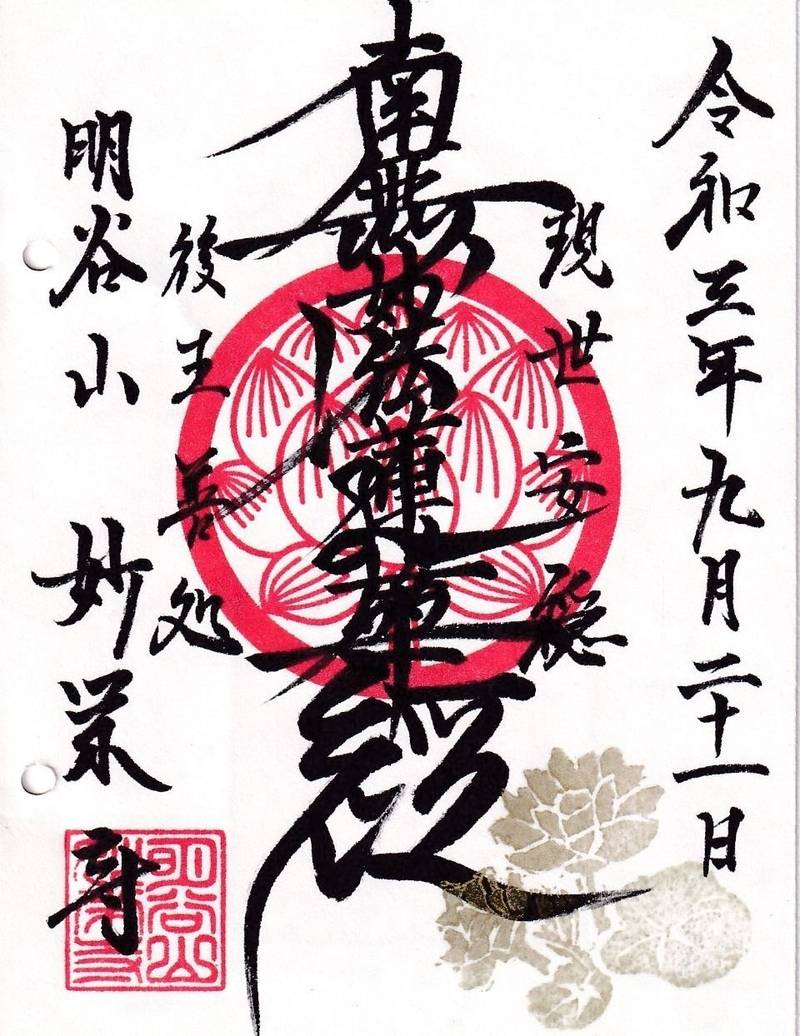 令和三年九月二十一日
現世安穏
南無妙法蓮華経
後生善処
明谷山 妙栄寺